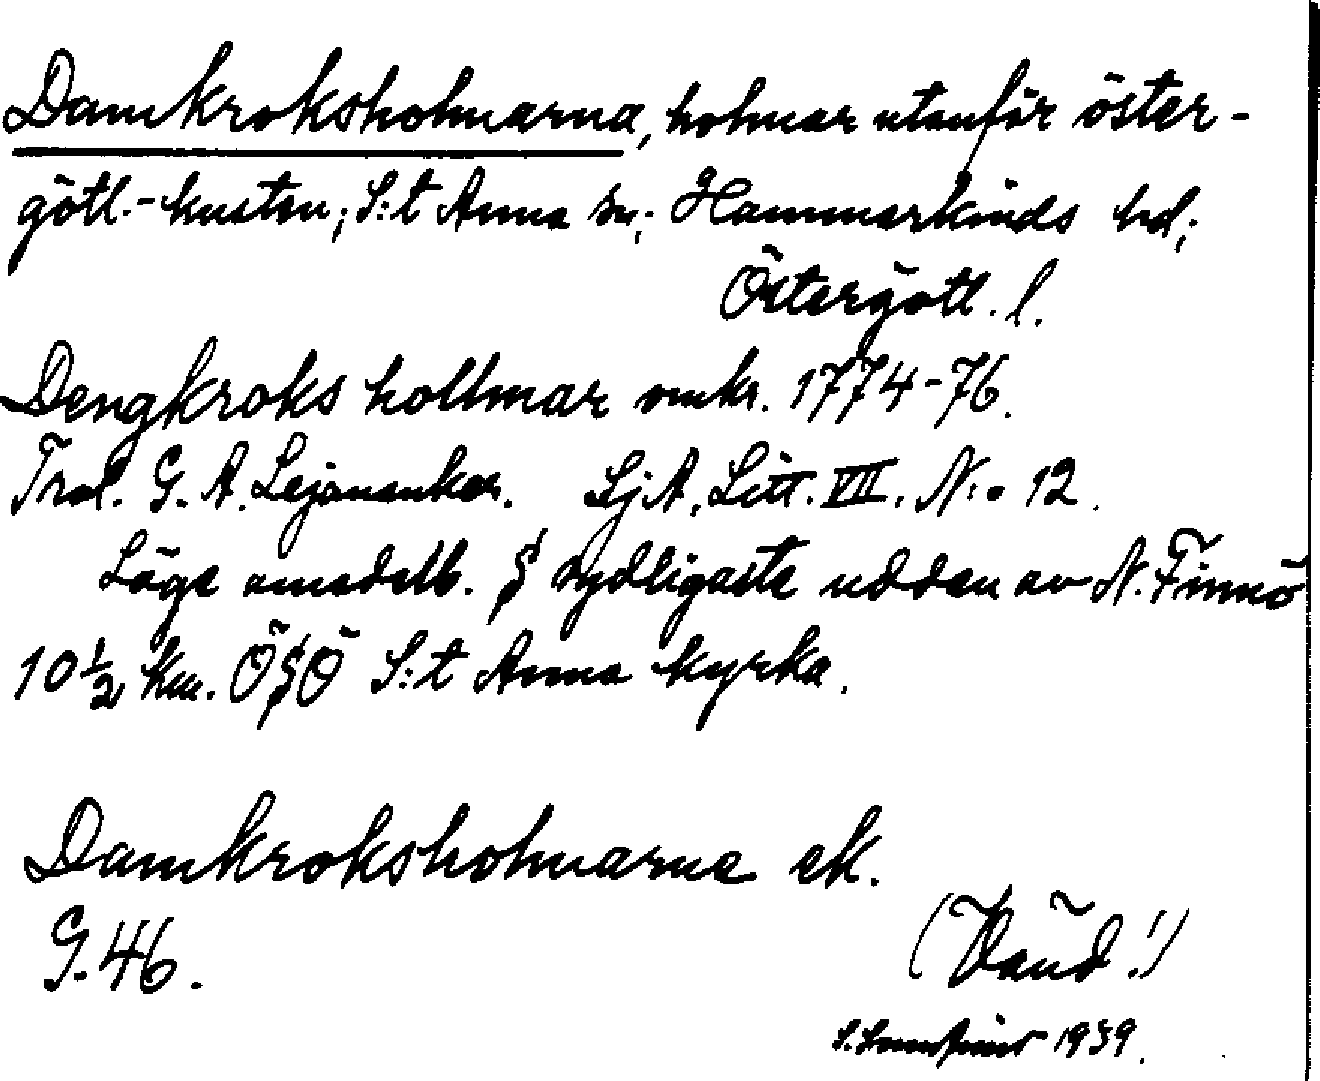 Damkroksholmarna, holmar utanför öster-
götl.-kusten; S:t Anna sn; Hammarkinds hd;
Östergötl. l.
Dengkroks hollmar omkr. 1774-76.
Trol. G. A. Lejonanker. SjA, Litt. VII. N:o 12.
Läge omedelb. S sydligaste udden av N. Finnö
10 1/2 km. ÖSÖ S:t Anna kyrka.
Damkroksholmarna ek.
G. 46.
(Vänd!)
S. 1939.